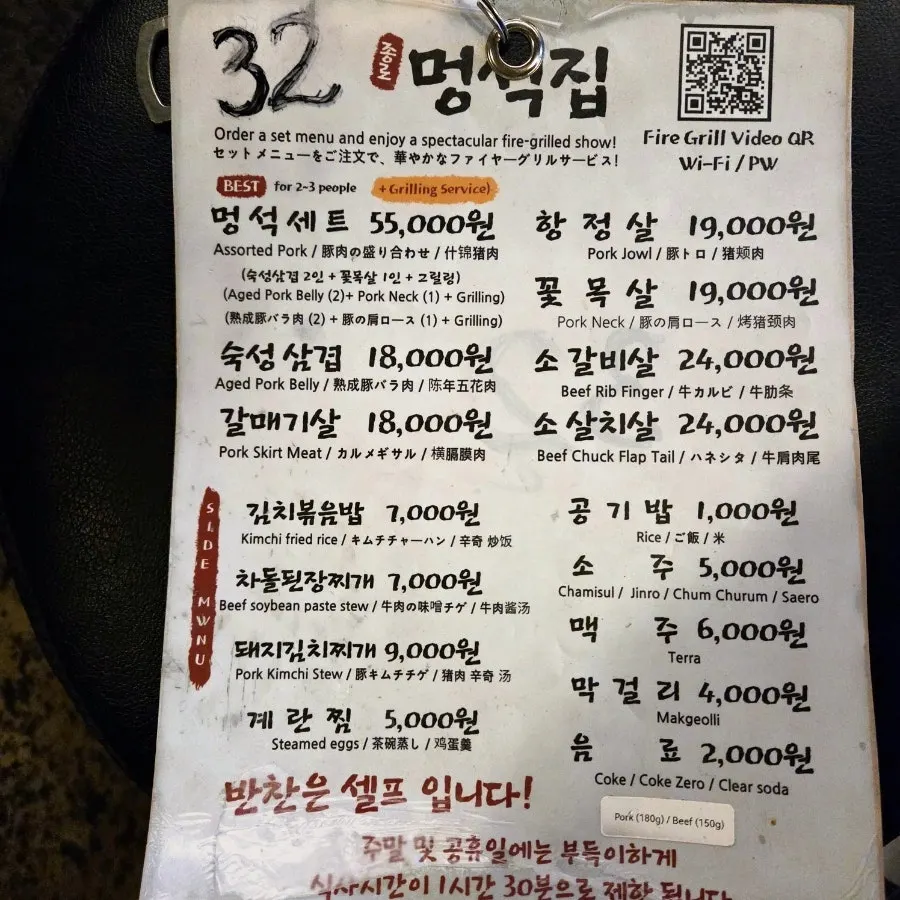 32
종로
멍석집
Fire Grill Video QR
Wi-Fi / PW
Order a set menu and enjoy a spectacular fire-grilled show!
セットメニューをご注文で、華やかなファイヤーグリルサービス!
BEST for 2~3 people + Grilling Service)
멍석세트 55,000원
Assorted Pork / 豚肉の盛り合わせ / 什锦猪肉
(숙성삼겹 2인 + 꽃목살 1인 + 그릴링)
(Aged Pork Belly (2)+ Pork Neck (1) + Grilling)
(熟成豚バラ肉 (2) + 豚の肩ロース (1) + Grilling)
숙성삼겹 18,000원
Aged Pork Belly / 熟成豚バラ肉 / 陈年五花肉
갈매기살 18,000원
Pork Skirt Meat / カルメギサル / 横膈膜肉
항정살 19,000원
Pork Jowl / 豚トロ / 猪颊肉
꽃목살 19,000원
Pork Neck / 豚の肩ロース / 烤猪颈肉
소갈비살 24,000원
Beef Rib Finger / 牛カルビ / 牛肋条
소살치살 24,000원
Beef Chuck Flap Tail / ハネシタ / 牛肩肉尾
SIDE MWNU
김치볶음밥 7,000원
Kimchi fried rice / キムチチャーハン / 辛奇 炒饭
차돌된장찌개 7,000원
Beef soybean paste stew / 牛肉の味噌チゲ / 牛肉酱汤
돼지김치찌개 9,000원
Pork Kimchi Stew / 豚キムチチゲ / 猪肉 辛奇 汤
계란찜 5,000원
Steamed eggs / 茶碗蒸し / 鸡蛋羹
공기밥 1,000원
Rice / ご飯 / 米
소주 5,000원
Chamisul / Jinro / Chum Churum / Saero
맥주 6,000원
Terra
막걸리 4,000원
Makgeolli
음료 2,000원
Coke / Coke Zero / Clear soda
Pork (180g) / Beef (150g)
반찬은 셀프 입니다!
주말 및 공휴일에는 부득이하게
식사시간이 1시간 30분으로 제한 됩니다